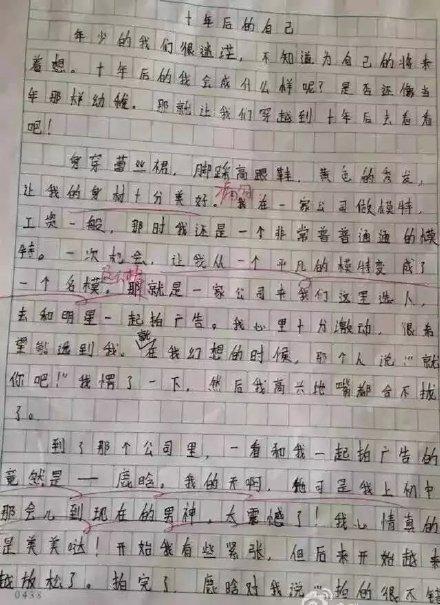 十年后的自己
年少的我们很迷茫，不知道为自己的将来
着想。十年后的我会成什么样呢？是否还像当
年那样幼稚。那就让我们穿越到十年后去看看
吧！
身穿蕾丝裙，脚踩高跟鞋，黄色的秀发，
让我的身材十分美好。我在一家公司做模特，
工资一般，那时我还是一个非常普普通通的模
特。一次机会，让我从一个平凡的模特变成了
一个名模。那就是一家公司来我们这里选人，
去和明星一起拍广告。我心里十分激动，很希
望能选到我。就在我幻想的时候，那个人说“就
你吧！”我愣了一下，然后我高兴地嘴都合不拢
了。
到了那个公司里，一看和我一起拍广告的
竟然是——鹿晗。我的天啊，他可是我上初中
那会儿到现在的男神。太震憾了！我心情真的
是美美哒！开始我有些紧张，但后来开始越来
越放松了。拍完了，鹿晗对我说“拍的很不错
0438